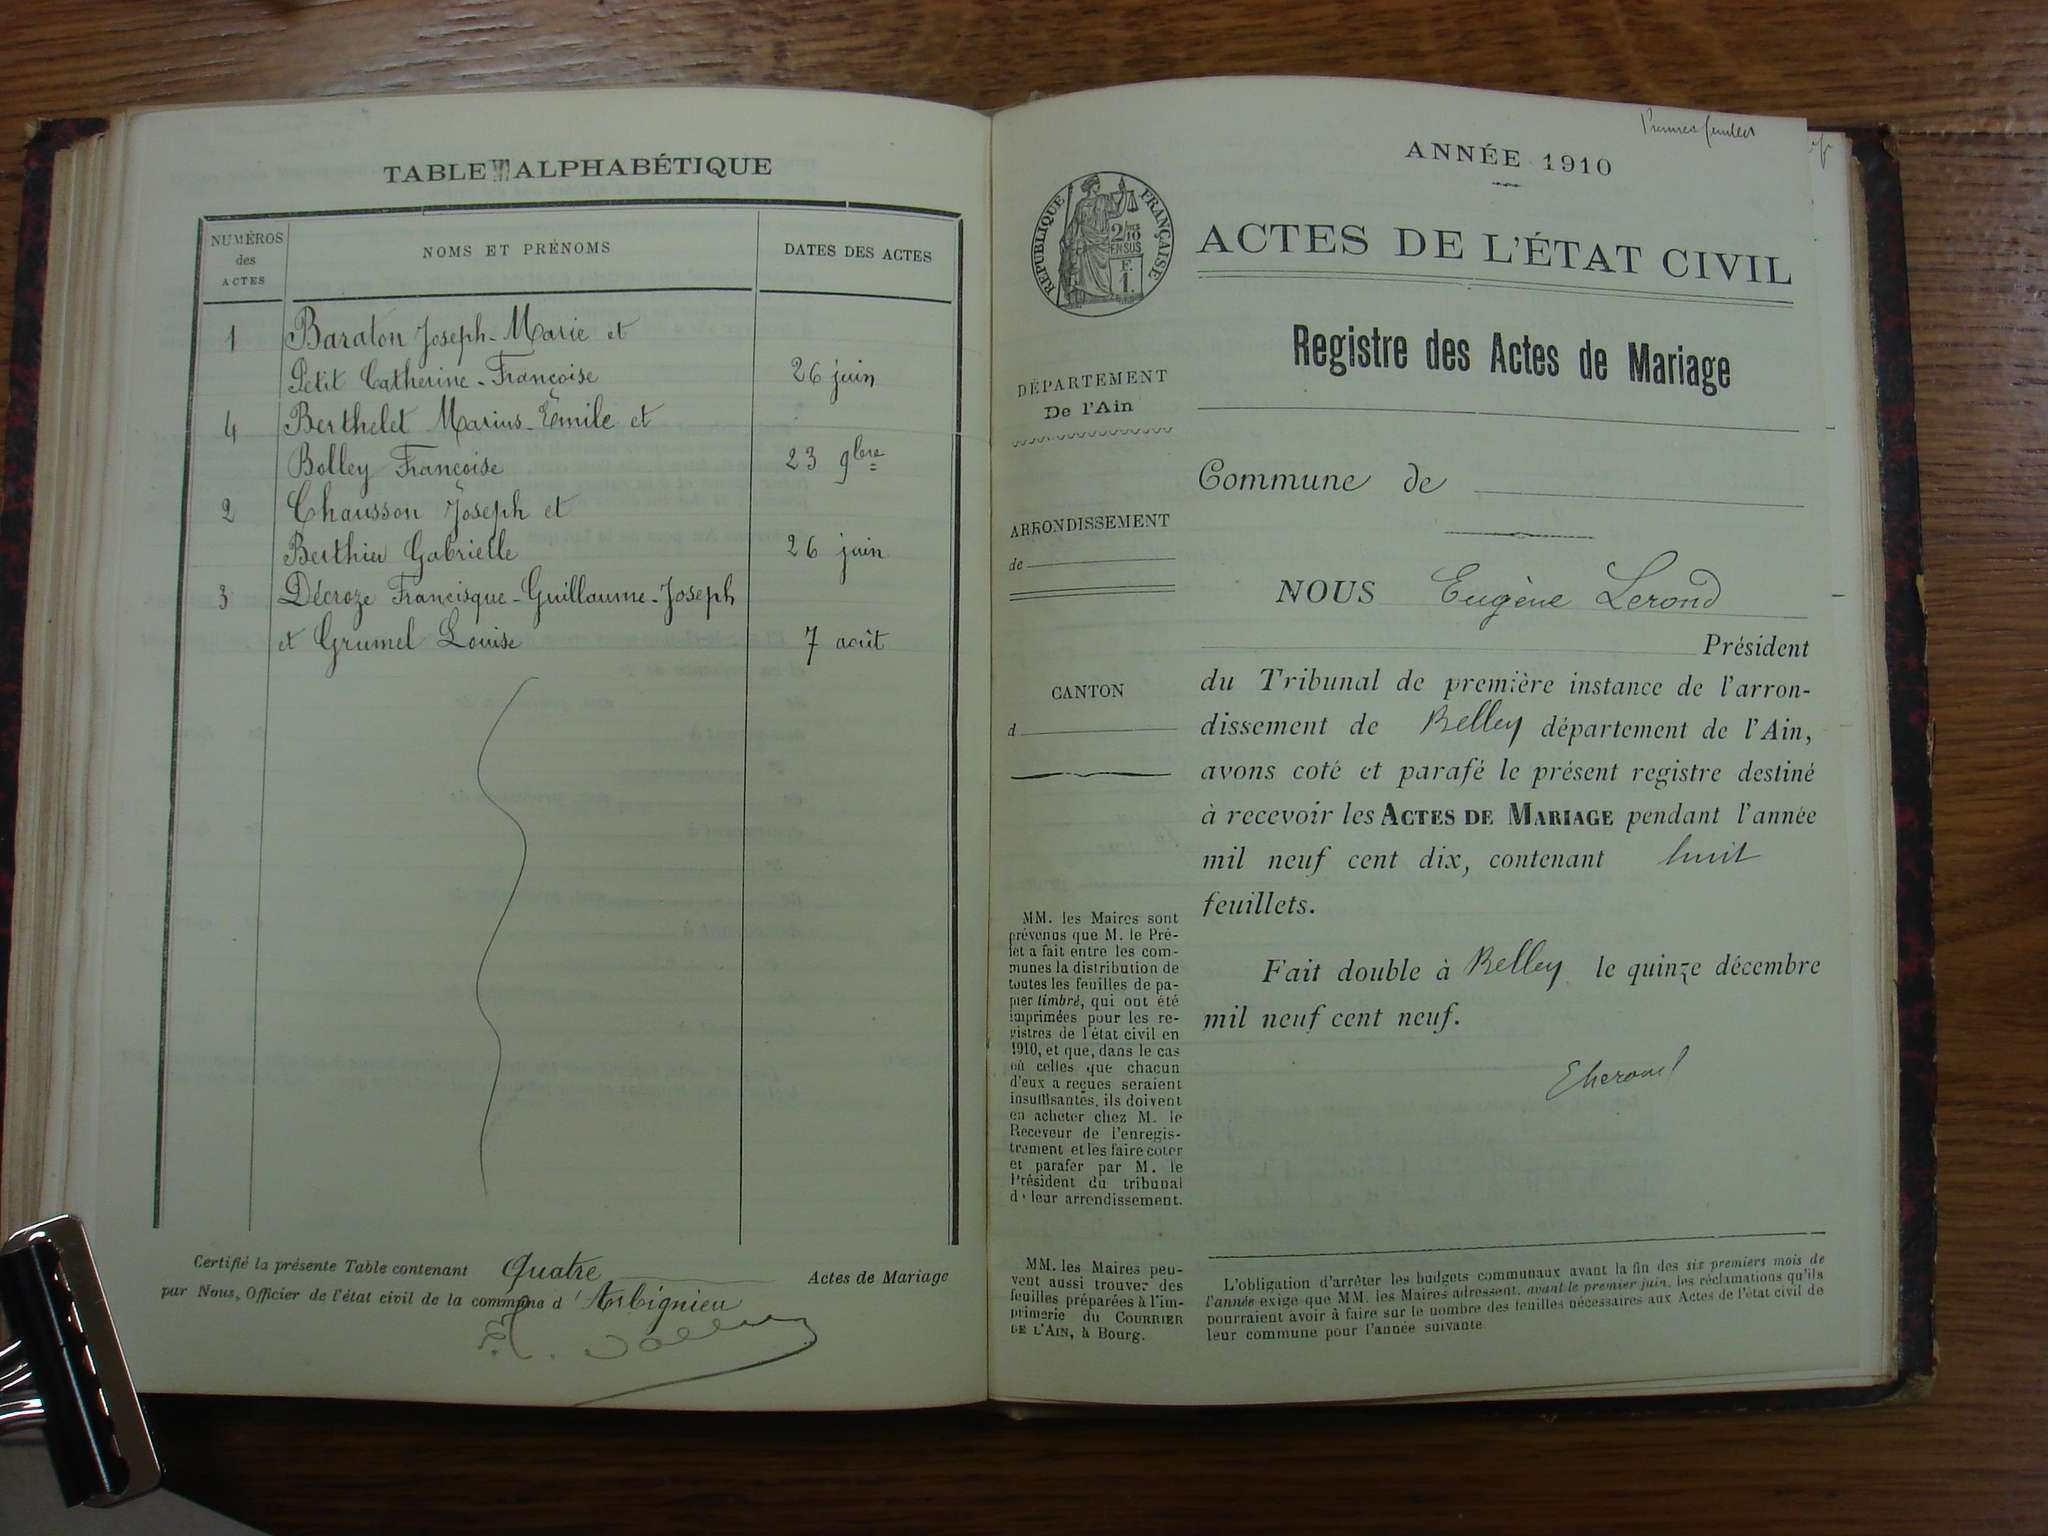 TABLE ALPHABÉTIQUE
NUMÉROS des ACTES
NOMS ET PRÉNOMS
DATES DES ACTES
1 Baraton Joseph-Marie et
Petit Catherine-Françoise 26 juin
4 Berthelet Marius-Émile et
Bolley Françoise 23 9bre
2 Chausson Joseph et
Berthier Gabrielle 26 juin
3 Décroze Francisque-Guillaume-Joseph
et Grumel Louise 7 août
Certifié la présente Table contenant Quatre Actes de Mariage
par Nous, Officier de l'état civil de la commune d'Arbignieu
ANNÉE 1910
RÉPUBLIQUE FRANÇAISE
2/10
EN SUS
F.
1.
ACTES DE L'ÉTAT CIVIL
Registre des Actes de Mariage
DÉPARTEMENT
De l'Ain
ARRONDISSEMENT
de
CANTON
d
MM. les Maires sont
prévenus que M. le Pré-
fet a fait entre les com-
munes la distribution de
toutes les feuilles de pa-
pier timbré, qui ont été
imprimées pour les re-
gistres de l'état civil en
1910, et que, dans le cas
où celles que chacun
d'eux a reçues seraient
insuffisantes, ils doivent
en acheter chez M. le
Receveur de l'enregis-
trement et les faire coter
et parafer par M. le
Président du tribunal
de leur arrondissement.
MM. les Maires peu-
vent aussi trouver des
feuilles préparées à l'im-
primerie du COURRIER
DE L'AIN, à Bourg.
Commune de
NOUS Eugène Lerond
Président
du Tribunal de première instance de l'arron-
dissement de Belley département de l'Ain,
avons coté et parafé le présent registre destiné
à recevoir les ACTES DE MARIAGE pendant l'année
mil neuf cent dix, contenant huit
feuillets.
Fait double à Belley le quinze décembre
mil neuf cent neuf.
L'obligation d'arrêter les budgets communaux avant la fin des six premiers mois de
l'année exige que MM. les Maires adressent, avant le premier juin, les réclamations qu'ils
pourraient avoir à faire sur le nombre des feuilles nécessaires aux Actes de l'état civil de
leur commune pour l'année suivante.